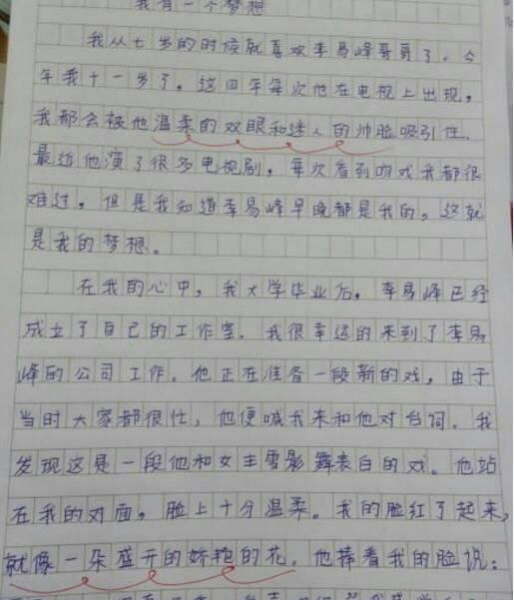 我有一个梦想
我从七岁的时候就喜欢李易峰哥哥了。今
年我十一岁了。这四年每次他在电视上出现，
我都会被他温柔的双眼和迷人的帅脸吸引住。
最近他演了很多电视剧，每次看到吻戏我都很
难过。但是我知道李易峰早晚都是我的。这就
是我的梦想。
在我的心中，我大学毕业后，李易峰已经
成立了自己的工作室。我很幸运的来到了李易
峰的公司工作。他正在准备一段新的戏，由于
当时大家都很忙，他便喊我来和他对台词。我
发现这是一段他和女主要影舞表白的戏。他站
在我的对面，脸上十分温柔。我的脸红了起来，
就像一朵盛开的娇艳的花。他捧着我的脸说：